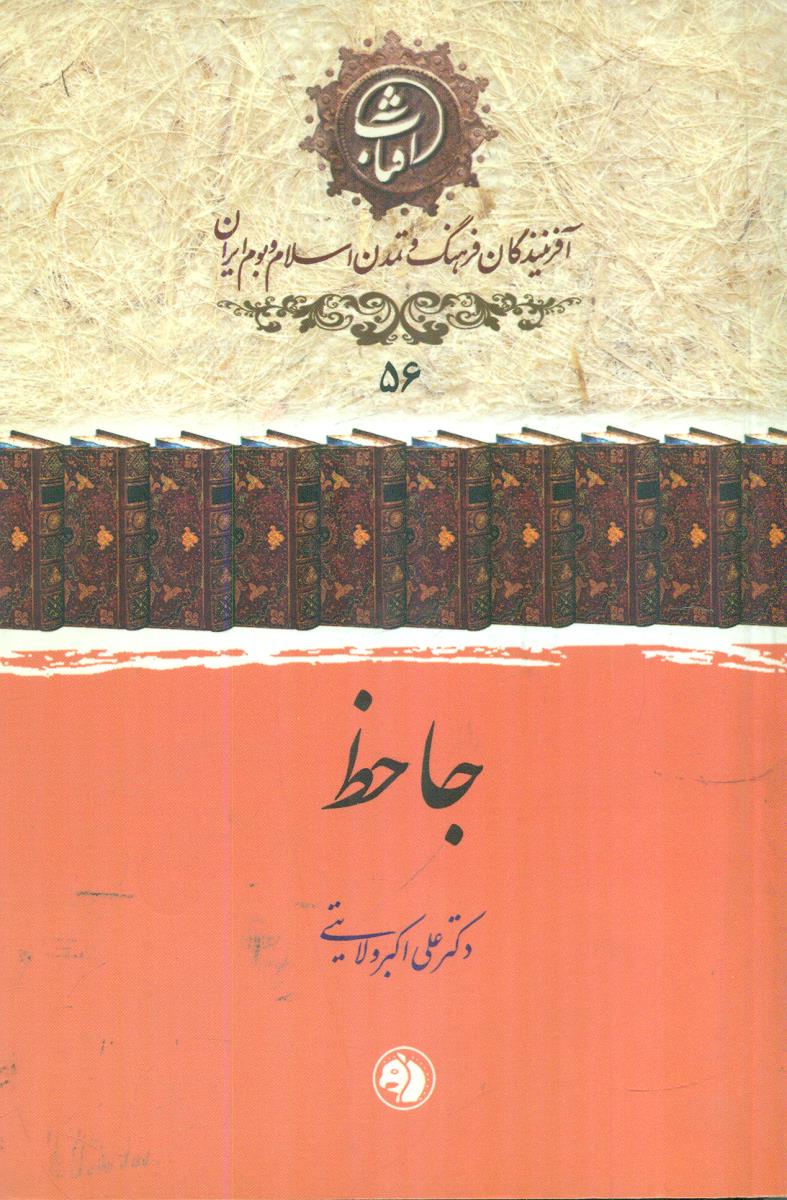 آفرینندگان فرهنگ و تمدن اسلام و بوم ایران
۵۶
جاحظ
دکتر علی اکبر ولایتی